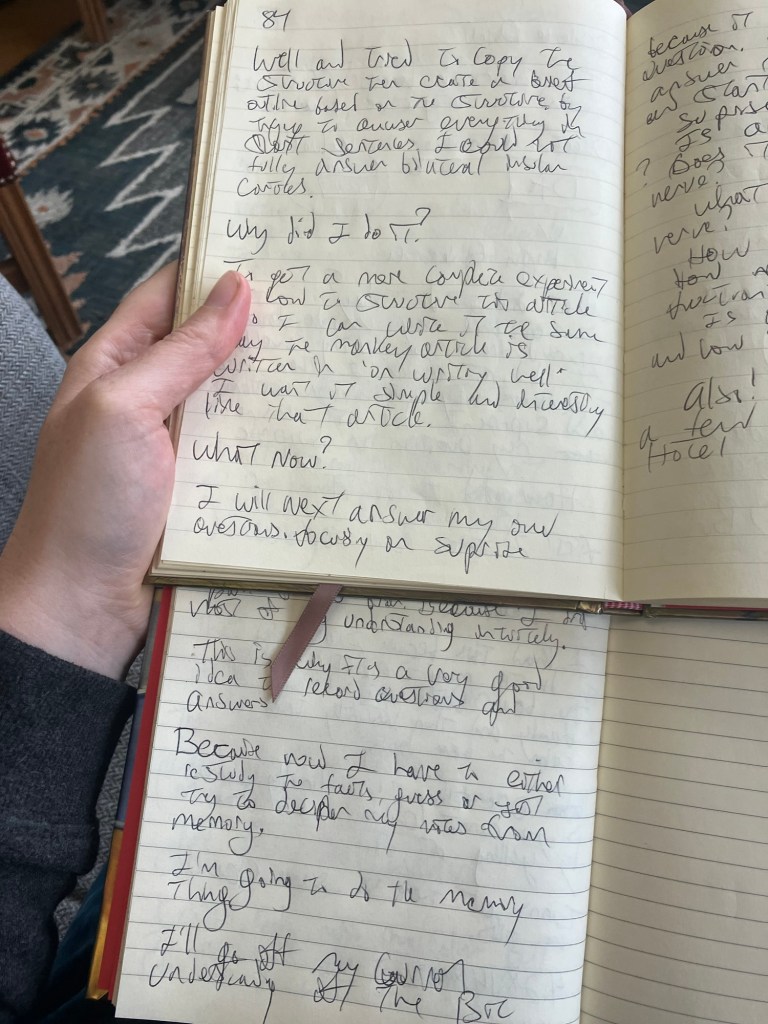 84
Well and tried to copy the
structure then create a
outline based on the structure, by
trying to answer everything in
sentences. I could not
fully answer bilateral insular
Why did I do it?
To get a more complete
how to structure this article
so I can write it the same
way the monkey article is
written in "on writing well"
I want it simple and
like that article.
What Now?
I will next answer my own
questions. focusing on suprise
because it
question.
answer
and start
suprise
Is a
? Does it
nerve?
what
nerve.
How
How
function
Is
and how
Also!
a few
Hotel
because I
most of my understanding intuitively.
This is why it's a very good
idea to record questions and
answers
Because now I have to either
restudy the facts, guess or just
try to decipher my notes from
memory.
I'm going to do the memory
Thing
I'll go off my current
understanding of the